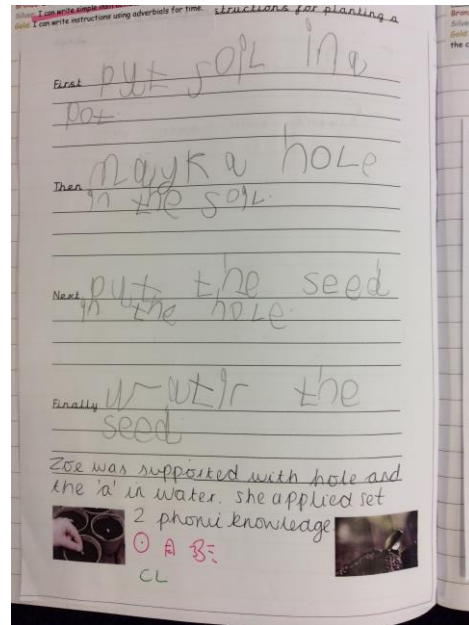 Silver: I can write simple inst
Gold: I can write instructions using adverbials for time.
structions for planting a
First put soil in a
pot.
Then mayk a hole
in the soil.
Next put the seed
in the hole.
Finally watir the
seed
Zoe was supported with hole and
the 'a' in water. she applied set
2 phonic knowledge
CL
Bron
Silve
Gold:
the c